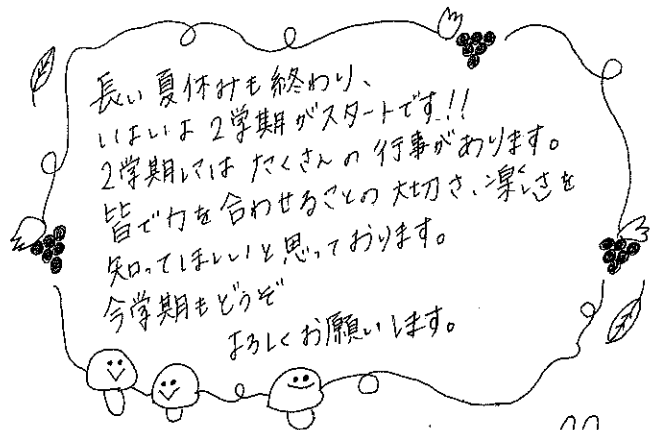 長い夏休みも終わり、
いよいよ2学期がスタートです!!
2学期にはたくさんの行事があります。
皆で力を合わせることの大切さ、楽しさを
知ってほしいと思っております。
今学期もどうぞ
よろしくお願いします。